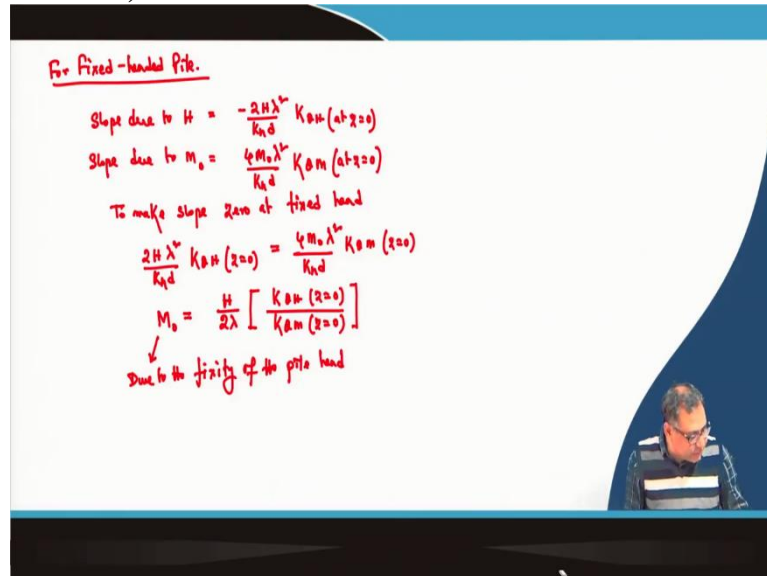 For Fixed-headed Pile.
Slope due to H = -2Hλ²/Kₕd KθH (at z=0)
Slope due to M₀ = 4M₀λ²/Kₕd KθM (at z=0)
To make slope zero at fixed head
2Hλ²/Kₕd KθH (z=0) = 4M₀λ²/Kₕd KθM (z=0)
M₀ = H/2λ [ KθH (z=0) / KθM (z=0) ]
Due to the fixity of the pile head